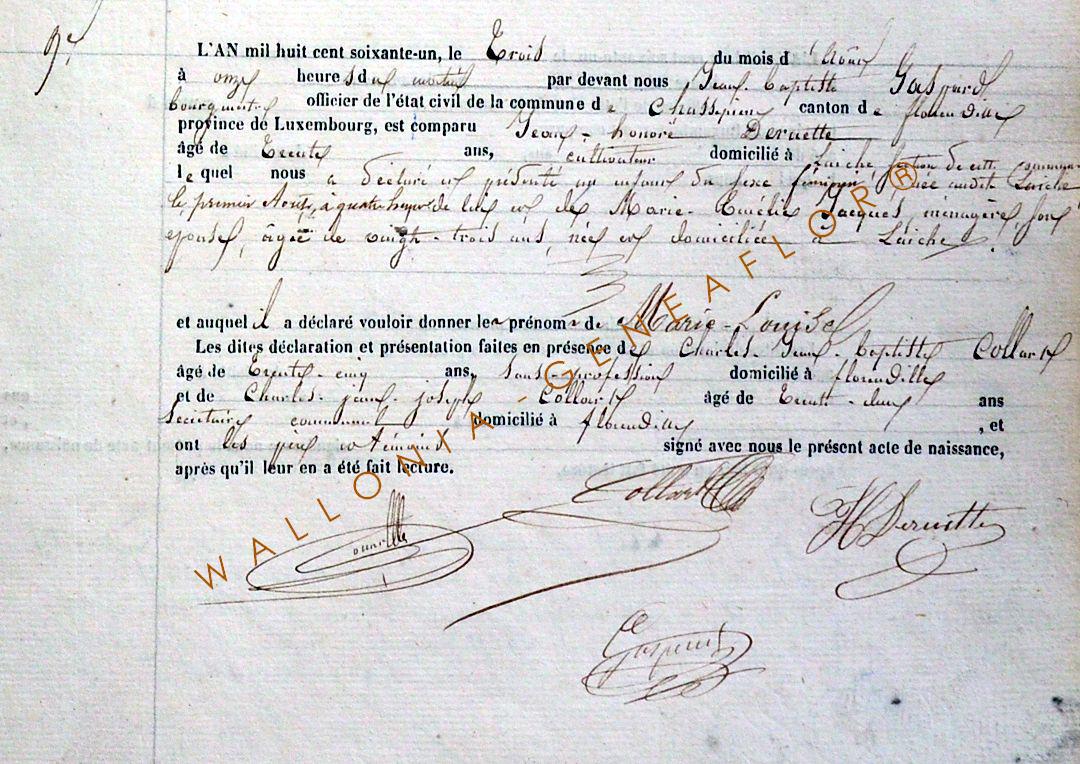 9e
L'AN mil huit cent soixante-un, le Trois du mois d'Août
à onze heures du matin par devant nous Jean-Baptiste Gaspard
bourgmestre officier de l'état civil de la commune de Chassepierre canton de florenville
province de Luxembourg, est comparu Jean-honoré Deruette
âgé de Trente ans, cultivateur domicilié à Laiche, section de cette commune
lequel nous a déclaré et présenté un enfant du sexe féminin, née audit Laiche
le premier Août, à quatre heures de lui et de Marie-Emélie Jacques, ménagère, son
épouse, âgée de vingt-trois ans, née et domiciliée à Laiche.
et auquel il a déclaré vouloir donner les prénoms de Marie-Louise
Les dites déclaration et présentation faites en présence de Charles-Jean-Baptiste Collard
âgé de Trente-cinq ans, sans-profession domicilié à florenville
et de Charles-jean-joseph Collard âgé de Trente-deux ans
Secrétaire communal domicilié à florenville, et
ont les père et témoins signé avec nous le présent acte de naissance,
après qu'il leur en a été fait lecture.
Collard
H Deruette
Gaspard
WALLONIA-GENEAFLOR®